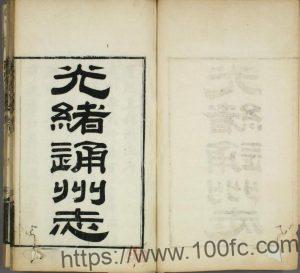 光緒通州志
https://www.100fc.com